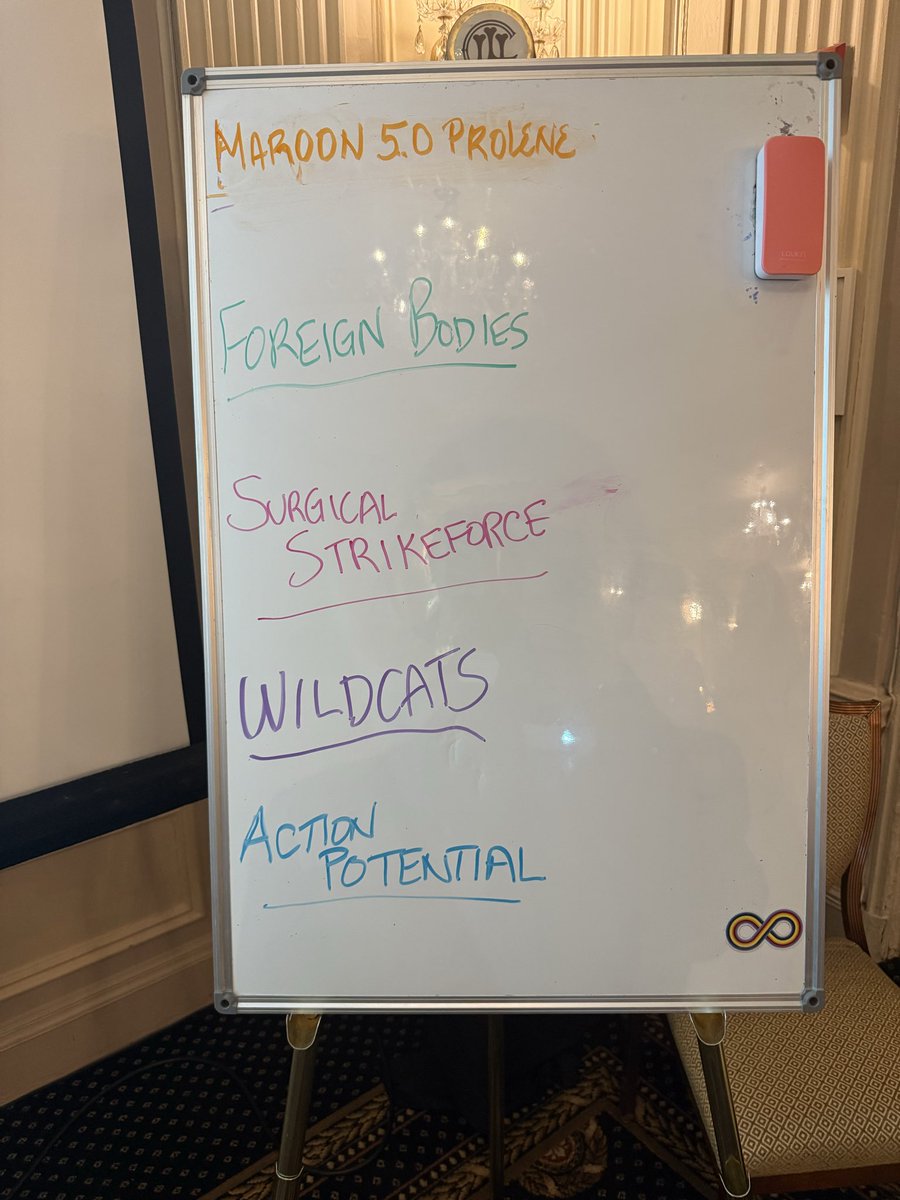 MAROON 5.0 PROLENE
FOREIGN BODIES
SURGICAL
STRIKEFORCE
WILDCATS
ACTION
POTENTIAL